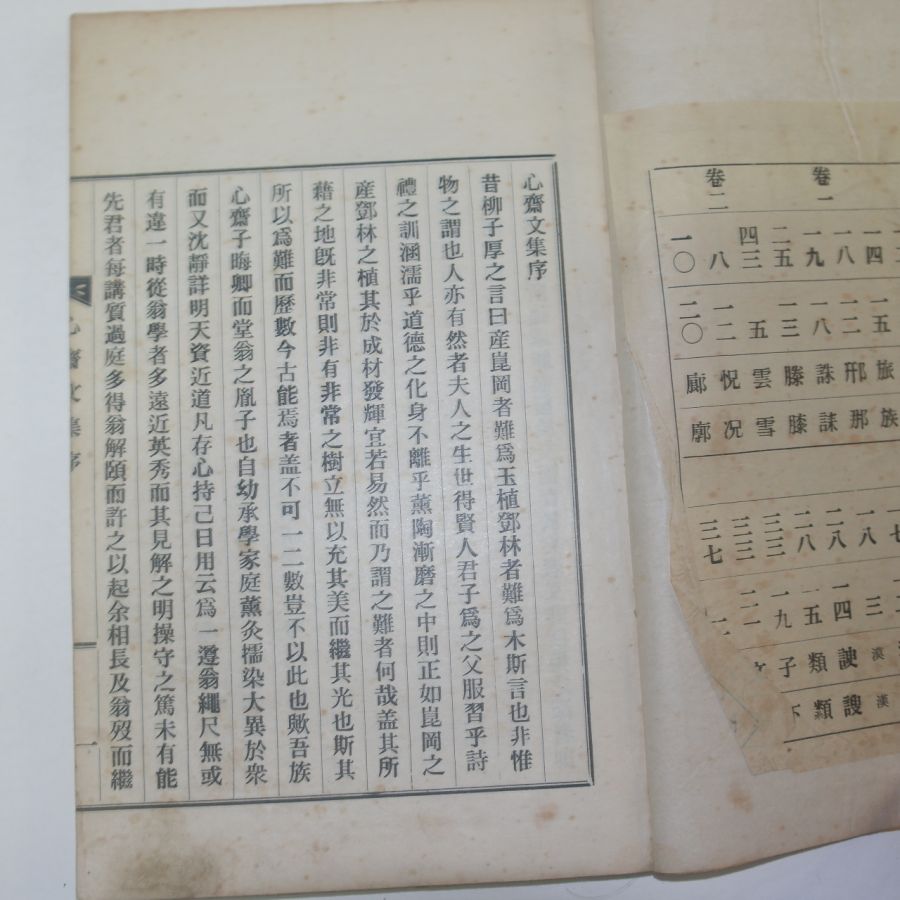 卷一
一四 一五 旅 族
一八 一二 邢 那
一九 八 誅 謀
二五 一三 滕 膝
四三 五 雲 雪
卷二
八 一二 怳 況
一〇 二〇 廊 廓
漢 漢
一八 三
二八 一四 諛 謏
二八 五 類 類
三三 一九 子
三三
三七
心齋文集序
昔柳子厚之言曰産崑岡者難爲玉植鄧林者難爲木斯言也非惟
物之謂也人亦有然者夫人之生世得賢人君子爲之父服習乎詩
禮之訓涵濡乎道德之化身不離乎薰陶漸磨之中則正如崑岡之
産鄧林之植其於成材發輝宜若易然而乃謂之難者何哉盖其所
藉之地旣非常則非有非常之樹立無以充其美而繼其光也斯其
所以爲難而歷數今古能焉者盖不可一二數豈不以此也歟吾族
心齋子晦卿而堂翁之胤子也自幼承學家庭薰灸擩染大異於衆
而又沈靜詳明天資近道凡存心持己日用云爲一遵翁繩尺無或
有違一時從翁學者多遠近英秀而其見解之明操守之篤未有能
先君者每講質過庭多得翁解頤而許之以起余相長及翁歿而繼
心齋文集序
一